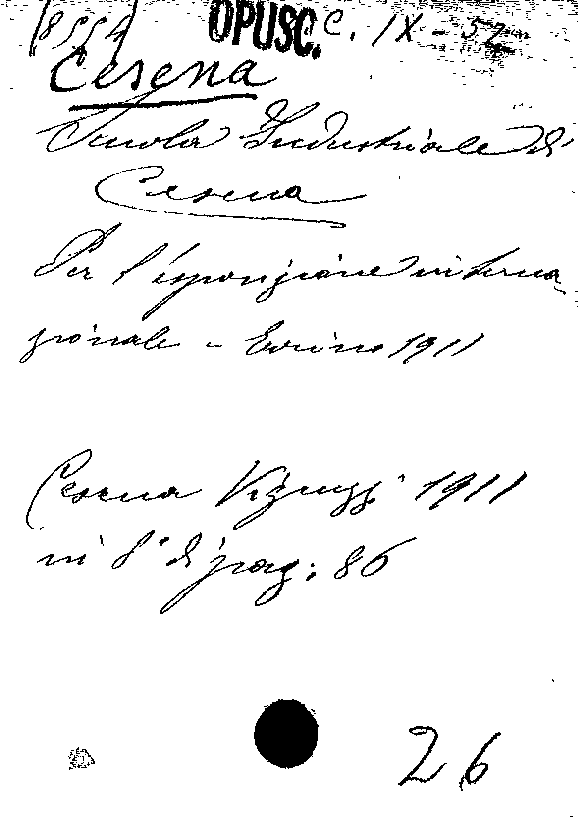 (8554) OPUSC. C. IX - 57
Cesena
Scuola Industriale di
Cesena
Per l'esposizione interna-
zionale - Torino 1911
Cesena Vignuzzi 1911
in 8° di pag: 86
26